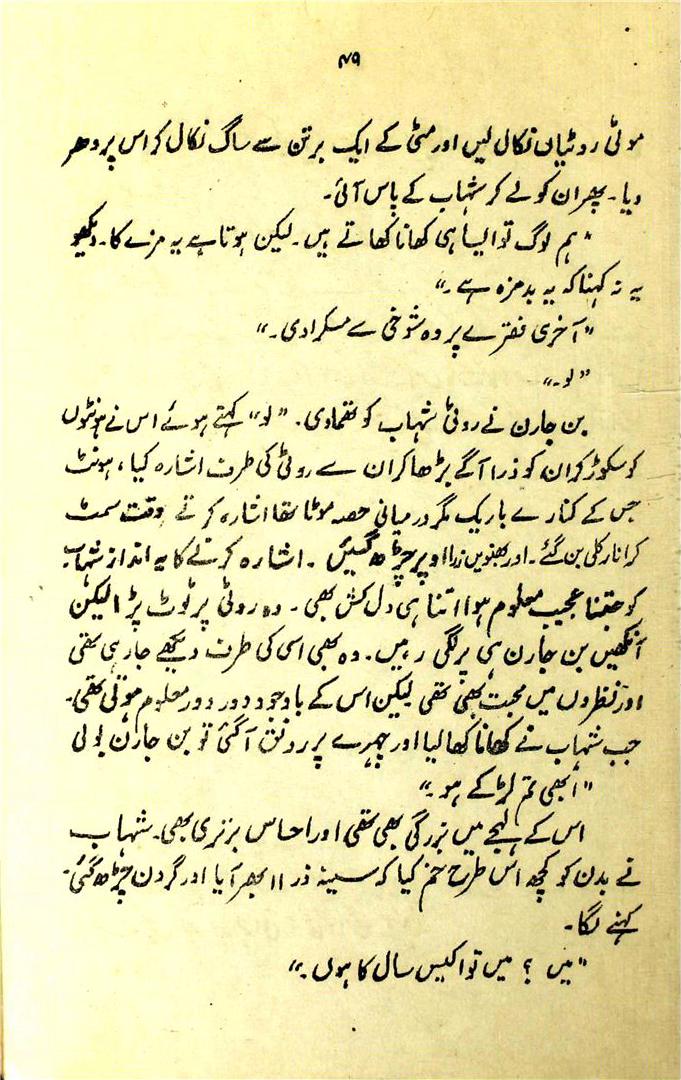 ۴۹
موٹی روٹیاں نکال لیں اور مٹی کے ایک برتن سے ساگ نکال کر اس پر دھر
دیا۔ پھر ان کو لے کر شہاب کے پاس آئی۔
"ہم لوگ تو ایسا ہی کھانا کھاتے ہیں۔ لیکن ہوتا ہے یہ مزے کا۔ دیکھو
یہ نہ کہنا کہ یہ بدمزہ ہے۔"
"آخری فقرے پر وہ شوخی سے مسکرا دی۔"
"لو۔"
بن جارن نے روٹی شہاب کو تھما دی۔ "لو" کہتے ہوئے اس نے ہونٹوں
کو سکوڑ کر ان کو ذرا آگے بڑھا کر ان سے روٹی کی طرف اشارہ کیا، ہونٹ
جس کے کنارے باریک مگر درمیانی حصہ موٹا تھا اشارہ کرتے وقت سمٹ
کر انار کلی بن گئے۔ اور بھنویں ذرا اوپر چڑھ گئیں۔ اشارہ کرنے کا یہ انداز شہاب
کو جتنا عجیب معلوم ہوا اتنا ہی دل کش بھی۔ وہ روٹی پر ٹوٹ پڑا لیکن
آنکھیں بن جارن ہی پر لگی رہیں۔ وہ بھی اسی کی طرف دیکھے جا رہی تھی
اور نظروں میں محبت بھی تھی لیکن اس کے باوجود دور دور معلوم ہوتی تھی۔
جب شہاب نے کھانا کھا لیا اور چہرے پر رونق آ گئی تو بن جارن بولی
"ابھی تم لڑکے ہو۔"
اس کے لہجے میں بزرگی بھی تھی اور احساس برتری بھی۔ شہاب
نے بدن کو کچھ اس طرح خم کیا کہ سینہ ذرا ابھر آیا اور گردن چڑھ گئی۔
کہنے لگا۔
"میں ؟ میں تو اکیس سال کا ہوں۔"